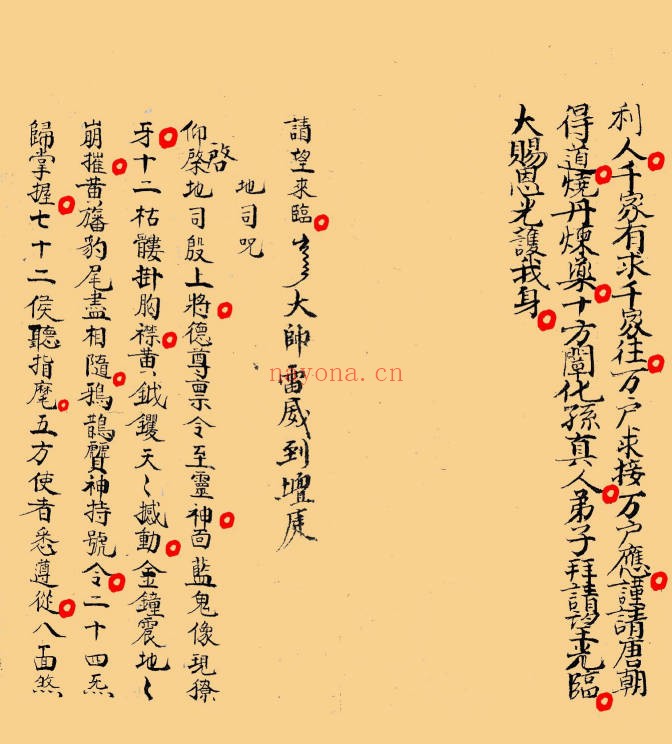 利人千家有求千家往万户求接万户應謹請唐朝
得道燒丹煉藥十方闡化孫真人弟子拜請望光臨
大賜恩光護我身
請望來臨大帥雷威到壇庭
地司咒
仰啓地司殷上將德尊禀令至靈神面藍鬼像現獠
牙十二枯髏掛胸襟黄鉞钁天〻撼動金鐘震地〻
崩摧黄旛豹尾盡相隨鴉鵲神持號令二十四炁
歸掌握七十二侯聽指麾五方使者悉遵從八面煞
nayona.cn